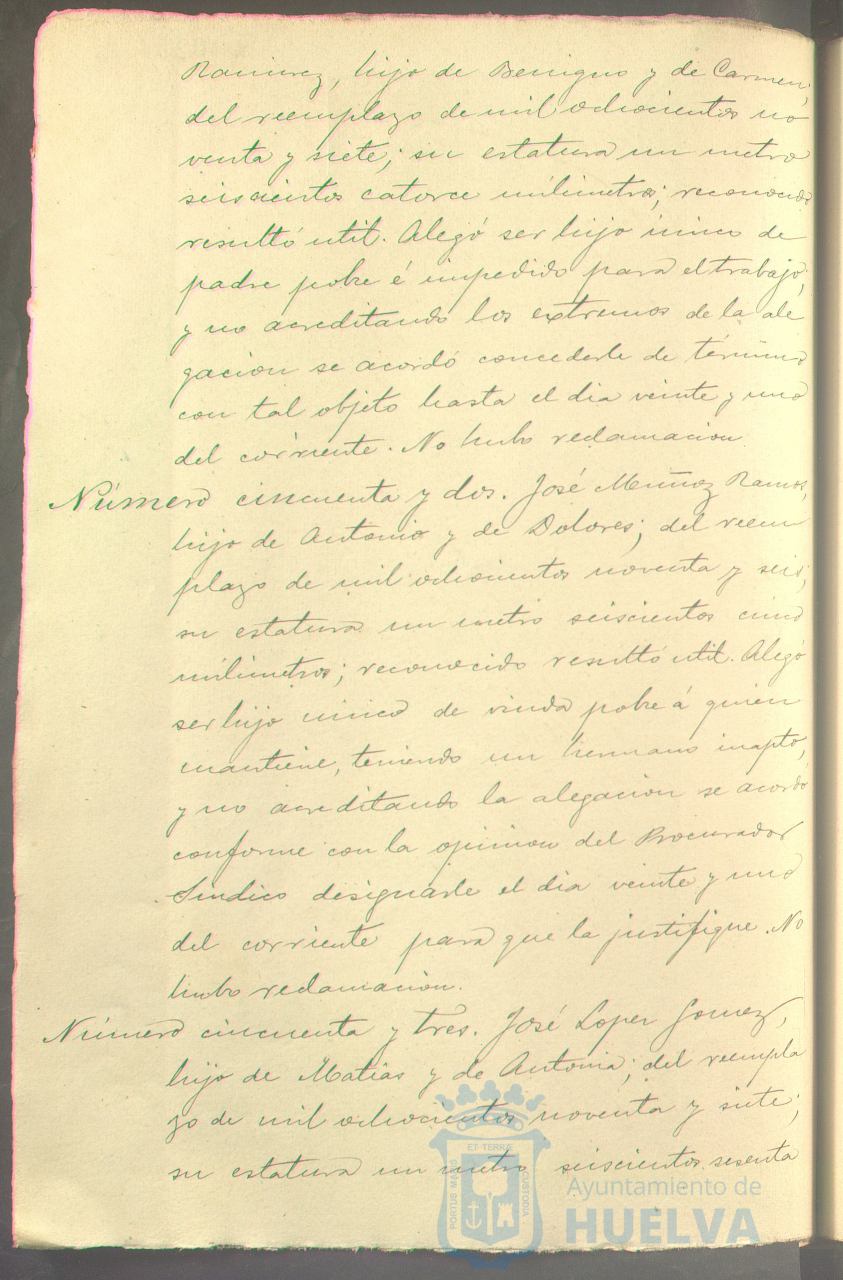 Ramirez, hijo de Benigno y de Carmen,
del reemplazo de mil ochocientos no
venta y siete; su estatura un metro
seiscientos catorce milimetros; reconocido
resultó util. Alegó ser hijo único de
padre pobre é impedido para el trabajo,
y no acreditando los extremos de la ale
gación se acordó concederle de término
con tal objeto hasta el dia veinte y uno
del corriente. No hubo reclamación.
Número cincuenta y dos. José Muñoz Ramos,
hijo de Antonio y de Dolores; del reem
plazo de mil ochocientos noventa y seis;
su estatura un metro seiscientos cinco
milimetros; reconocido resultó util. Alegó
ser hijo único de viuda pobre á quien
mantiene, teniendo un hermano inapto,
y no acreditando la alegación se acordó
conforme con la opinion del Procurador
Sindico designarle el dia veinte y uno
del corriente para que la justifique. No
hubo reclamación.
Número cincuenta y tres. José Lopez Gomez,
hijo de Matías y de Antonia; del reempla
zo de mil ochocientos noventa y siete;
su estatura un metro seiscientos sesenta
PORTUS MARIS ET TERRÆ CUSTODIA
Ayuntamiento de
HUELVA